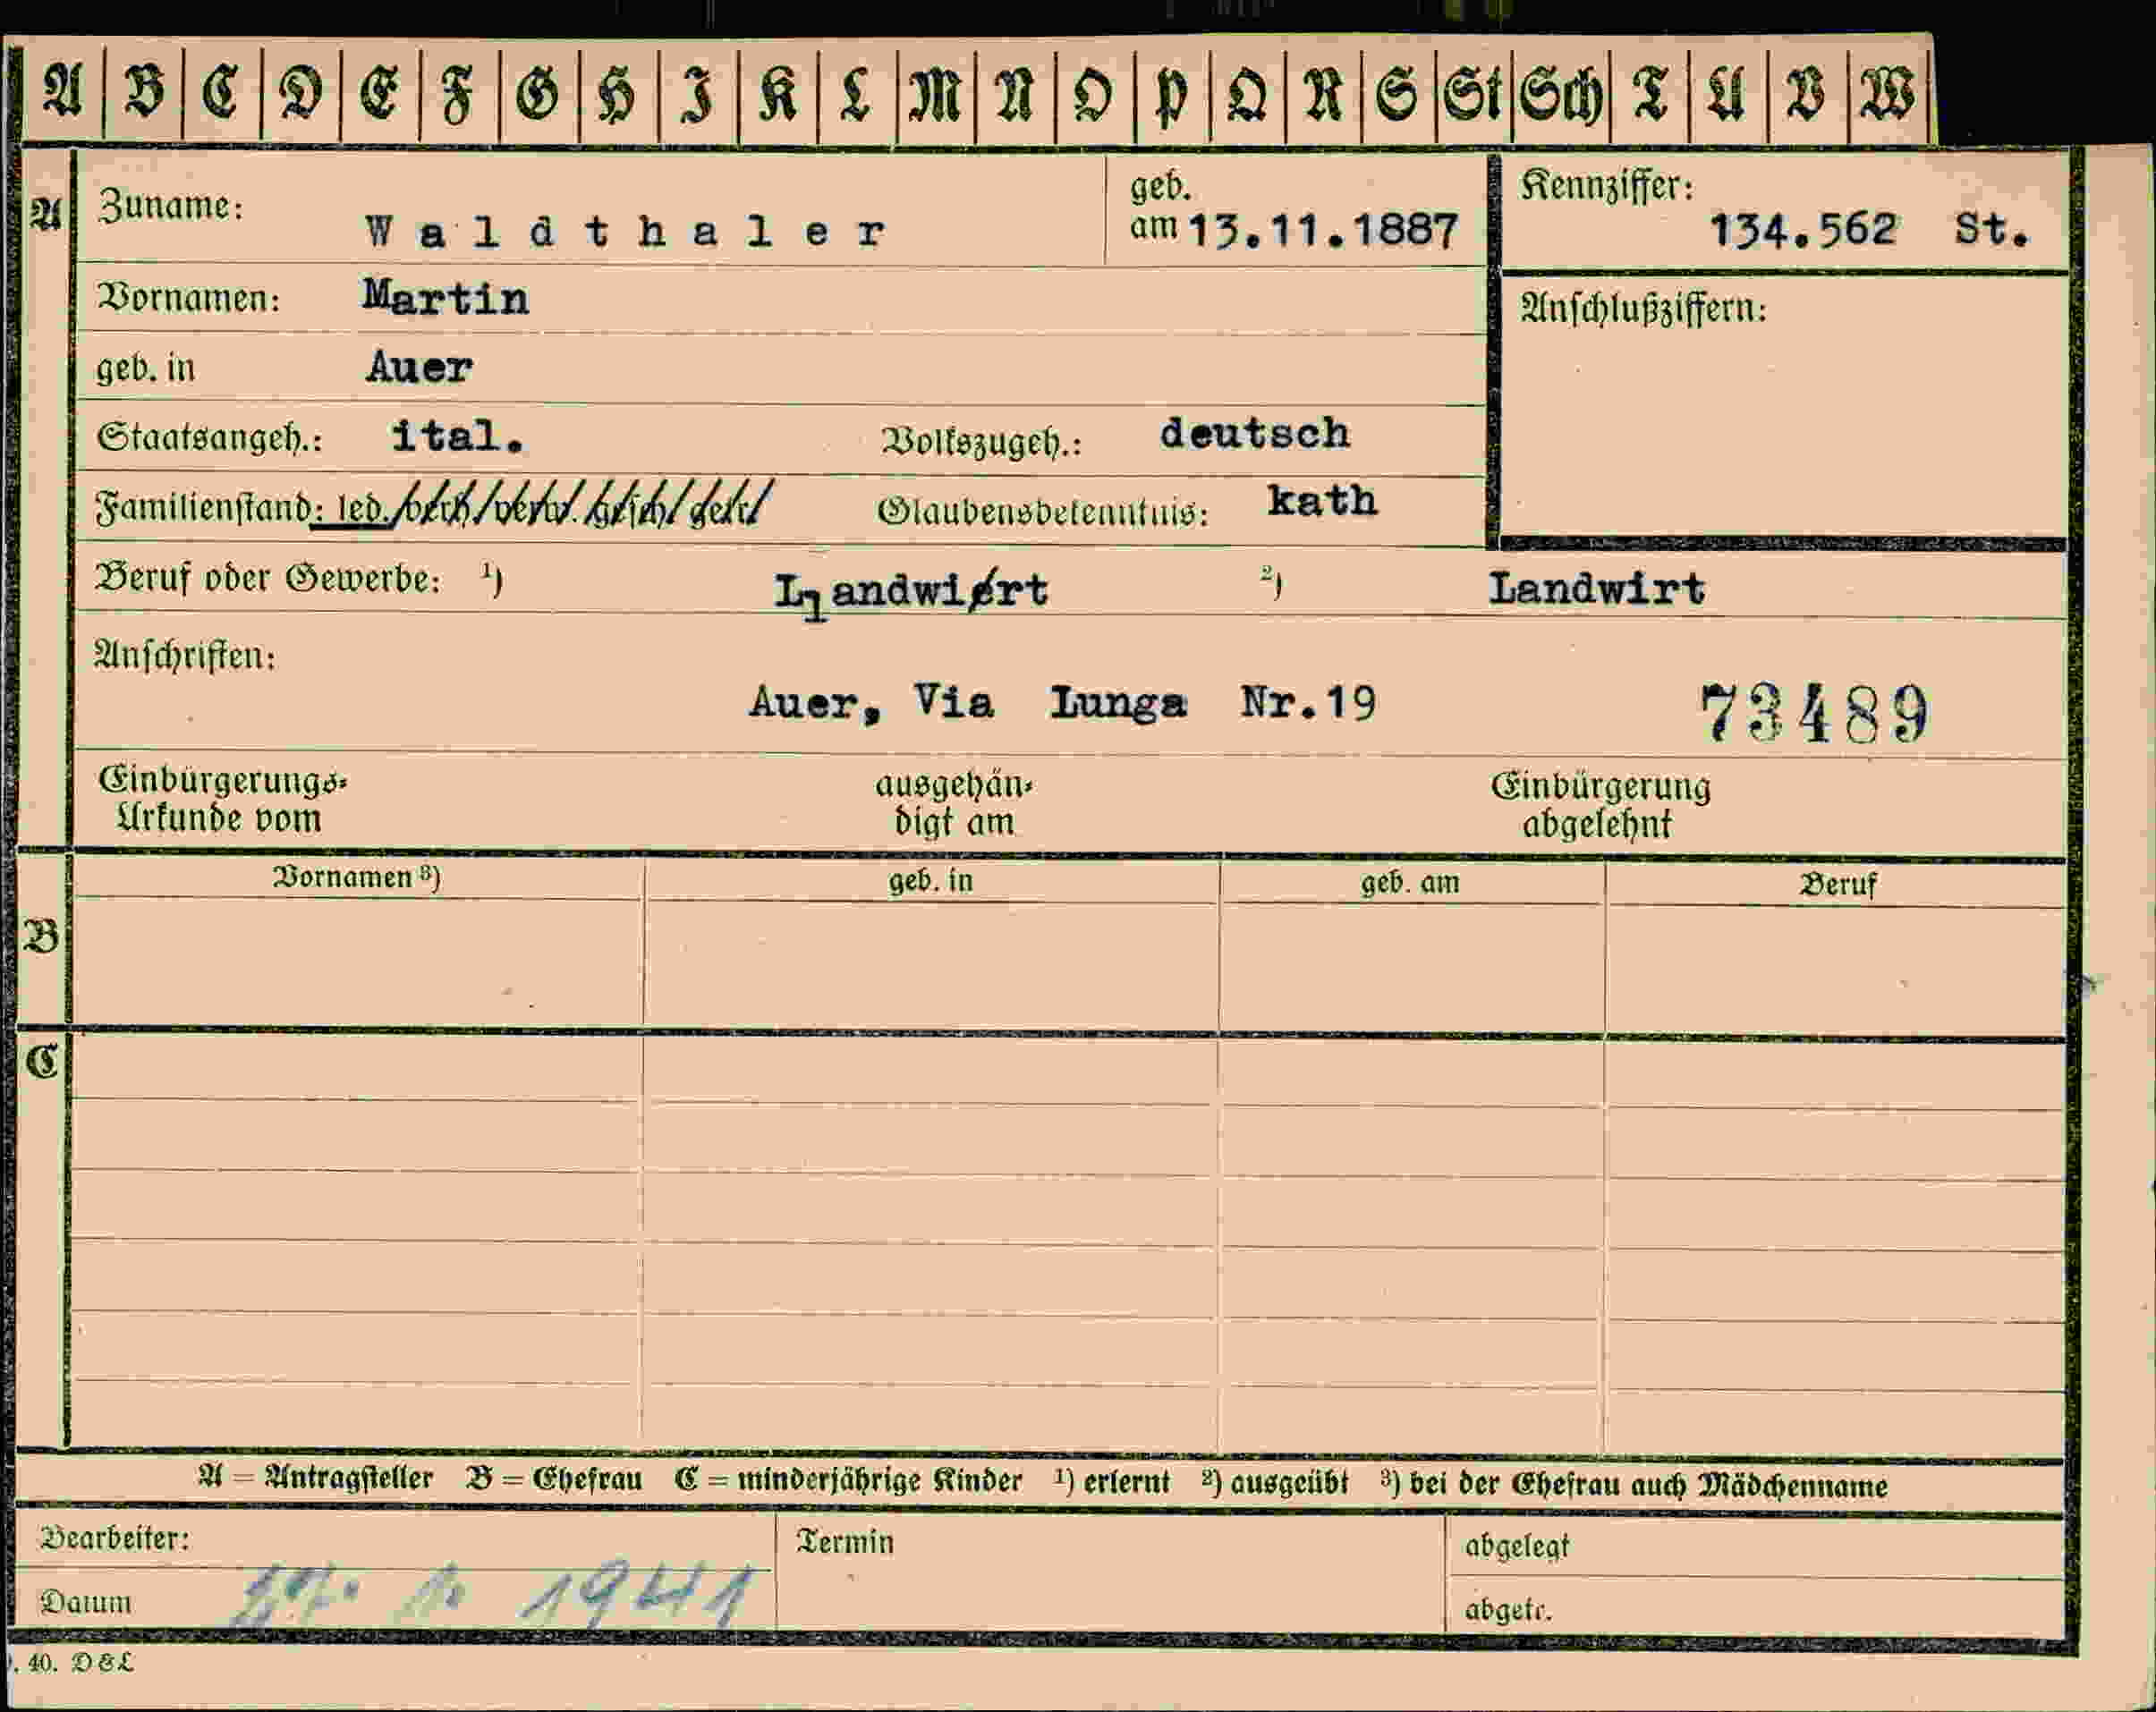 A B C D E F G H I K L M N O P Q R S St Sch T U V W
A
Zuname: Waldthaler
geb. am 13.11.1887
Kennziffer: 134.562 St.
Vornamen: Martin
Anschlußziffern:
geb. in Auer
Staatsangeh.: ital. Volkszugeh.: deutsch
Familienstand: led. Glaubensbekenntnis: kath
Beruf oder Gewerbe: ¹) Landwirt ²) Landwirt
Anschriften:
Auer, Via Lunga Nr.19 73489
Einbürgerungs-
Urkunde vom
ausgehän-
digt am
Einbürgerung
abgelehnt
Vornamen ³) geb. in geb. am Beruf
B
C
A = Antragsteller B = Ehefrau C = minderjährige Kinder ¹) erlernt ²) ausgeübt ³) bei der Ehefrau auch Mädchenname
Bearbeiter: Termin abgelegt
Datum 1941 abgetr.
40. D & L